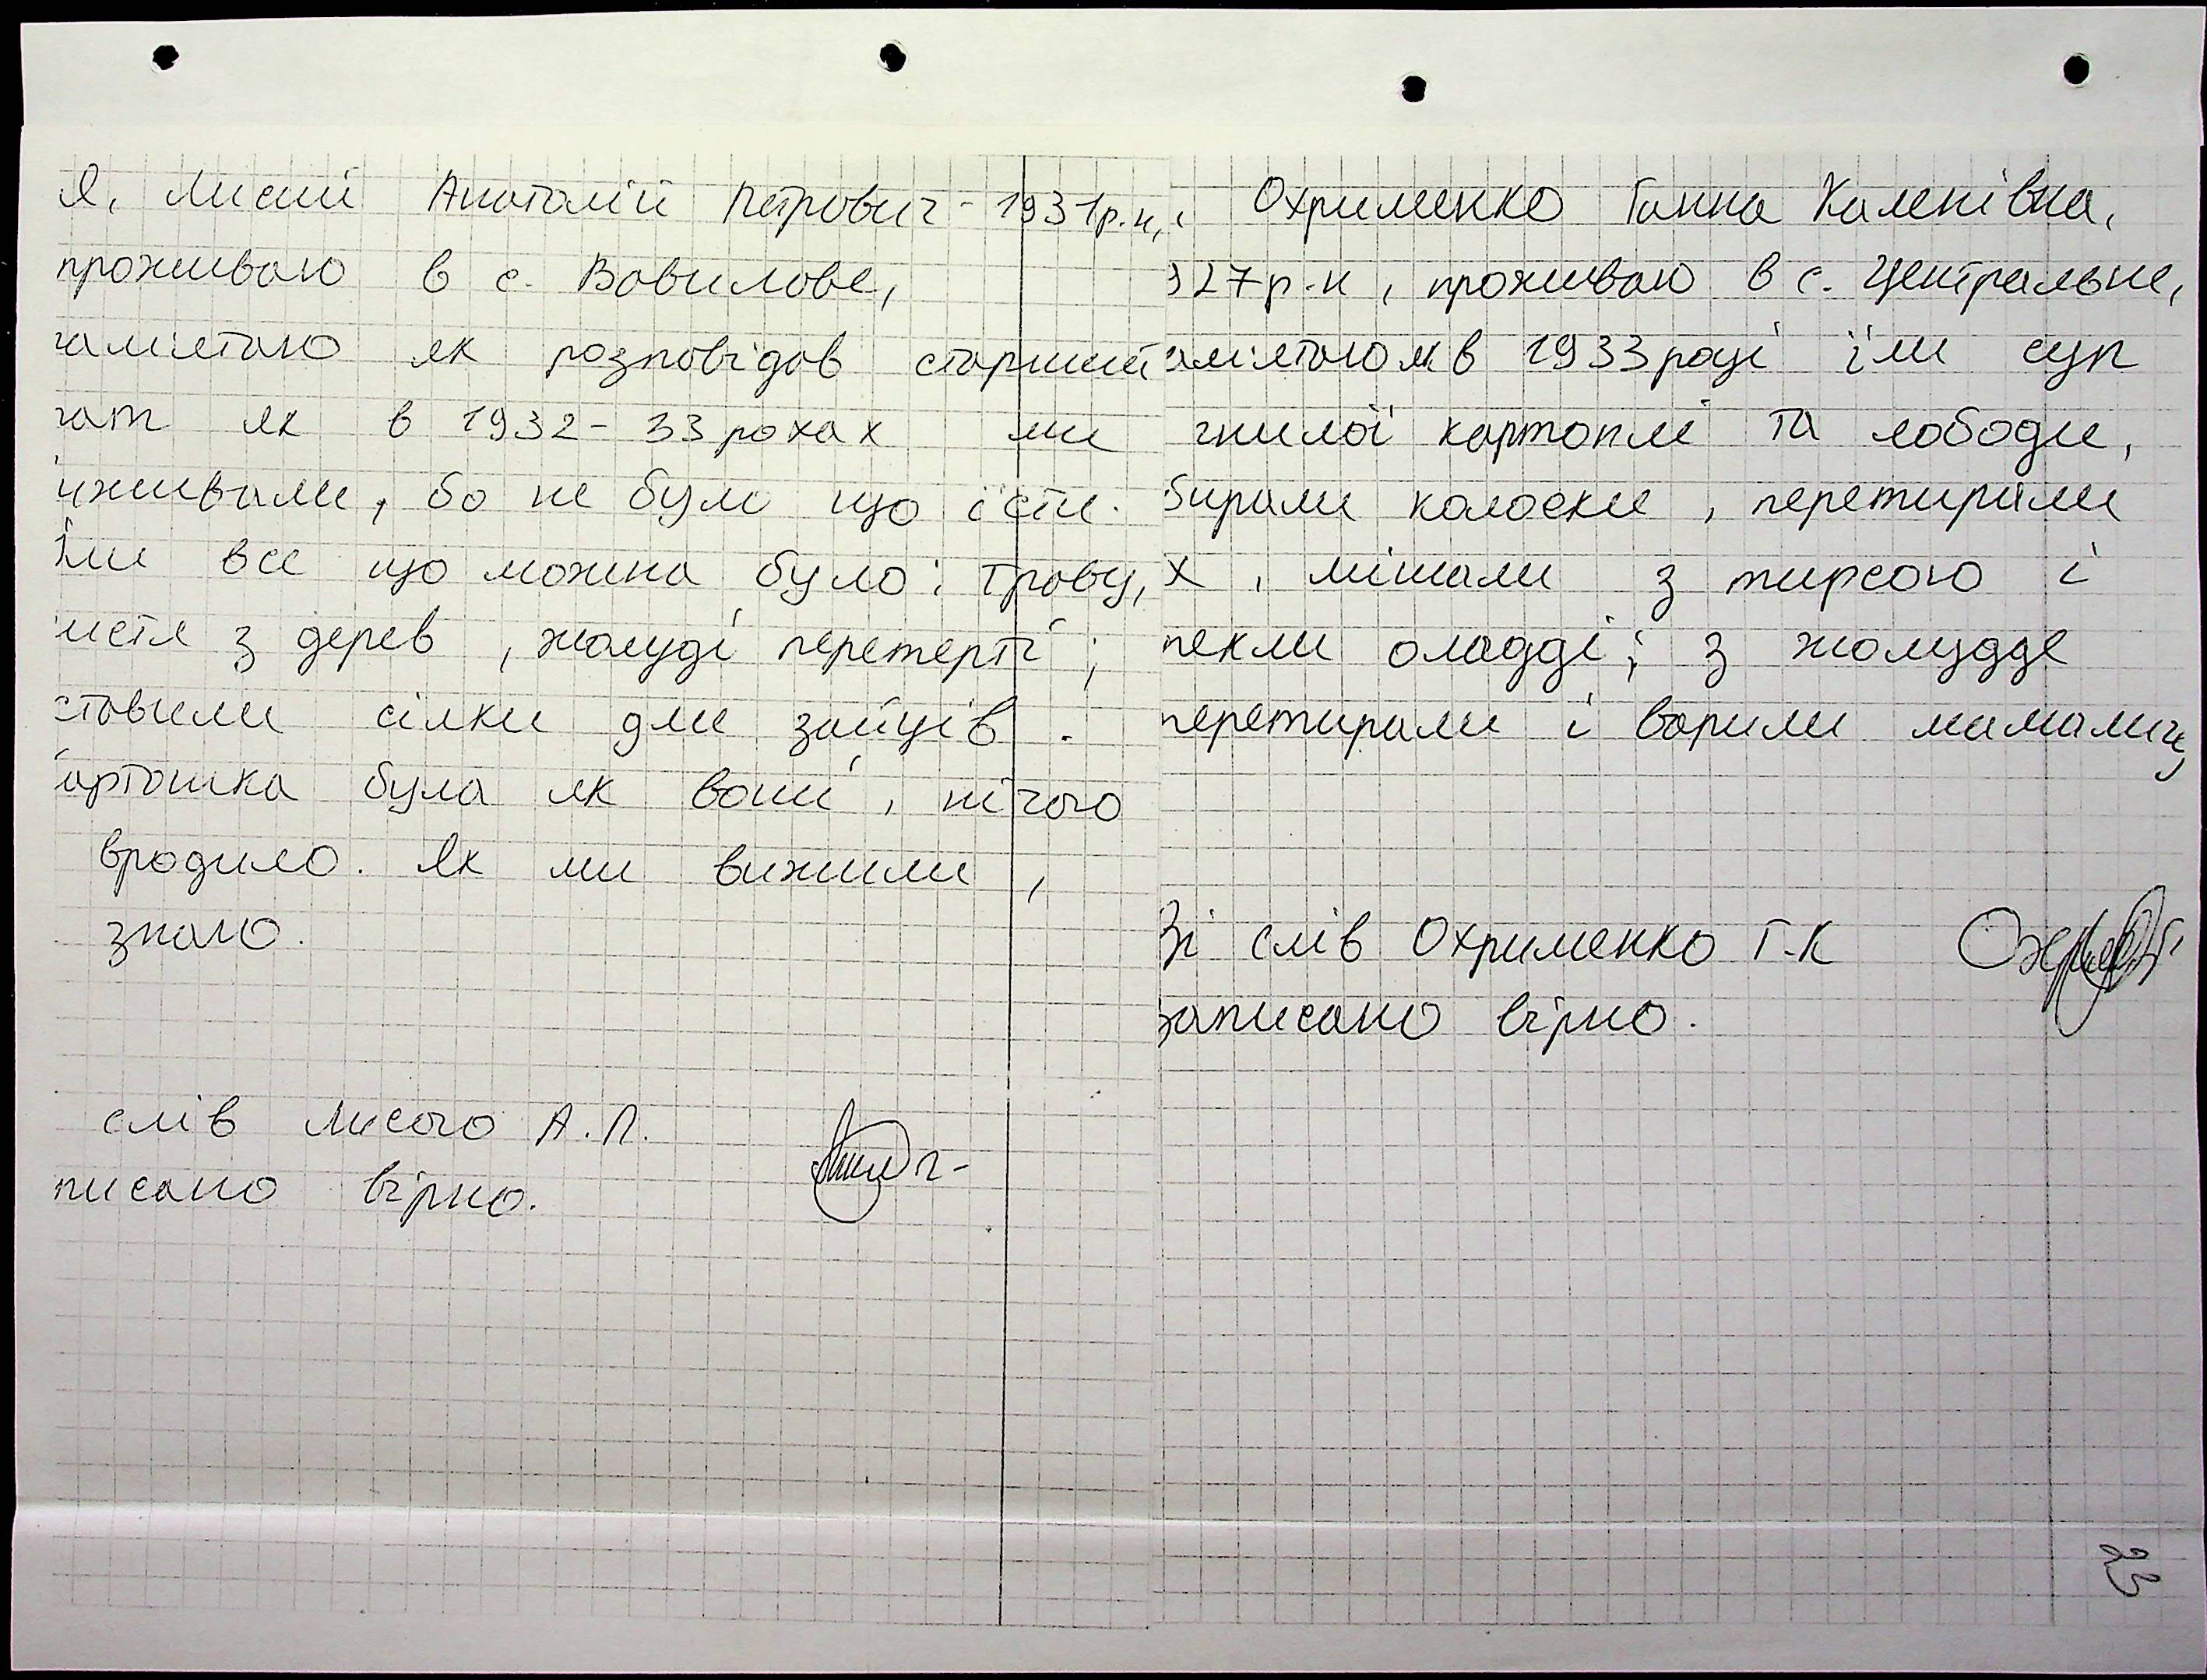 Я, Лисий Анатолій Петрович - 1931р.н,
проживаю в с. Вавилове,
амʼятаю як розповідав старший
рат як в 1932-33 роках ми
иживали, бо не було що їсти.
їли все що можна було: траву,
истя з дерев, жолуді перетерті;
ставили сілки для зайців.
артошка була як воші, нічого
вродило. Як ми вижили,
знаю.
слів Лисого А.П.
писано вірно.
Охрименко Ганна Каленівна,
927р.н, проживаю в с. Центральне,
амʼятаю як в 1933 році їли суп
гнилої картоплі та лободи,
бирали колоски, перетирали
х, мішали з тирсою і
пекли оладді; з жолуддя
перетирали і варили мамалигу
Зі слів Охрименко Г.К
записано вірно.
23